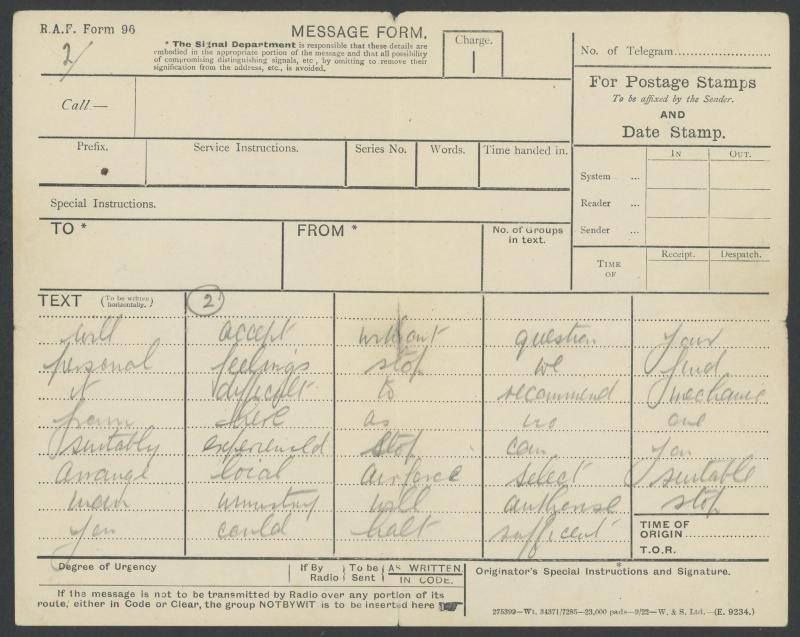 R.A.F. Form 96
MESSAGE FORM.
* The Signal Department is responsible that these details are
embodied in the appropriate portion of the message and that all possibility
of compromising distinguishing signals, etc., by omitting to remove their
signification from the address, etc., is avoided.
Charge.
No. of Telegram
2/
Call.—
For Postage Stamps
To be affixed by the Sender.
AND
Date Stamp.
Prefix.
Service Instructions.
Series No.
Words.
Time handed in.
IN
OUT.
System ...
Reader ...
Sender ...
Special Instructions.
TO *
FROM *
No. of Groups
in text.
TIME
OF
Receipt.
Despatch.
TEXT (To be written
horizontally.)
2
will accept without question your
personal feelings stop we find
it difficult to recommend mechanic
from here as no one
suitably experienced stop can you
arrange local airforce select suitable
man ministry will authorise stop
you could halt sufficient
TIME OF
ORIGIN
T.O.R.
Degree of Urgency
If By
Radio
To be
Sent
AS WRITTEN
IN CODE.
Originator's Special Instructions* and Signature.
If the message is not to be transmitted by Radio over any portion of its
route, either in Code or Clear, the group NOTBYWIT is to be inserted here
275399—Wt. 34371/7285—23,000 pads—9/22—W. & S. Ltd.—(E. 9234.)